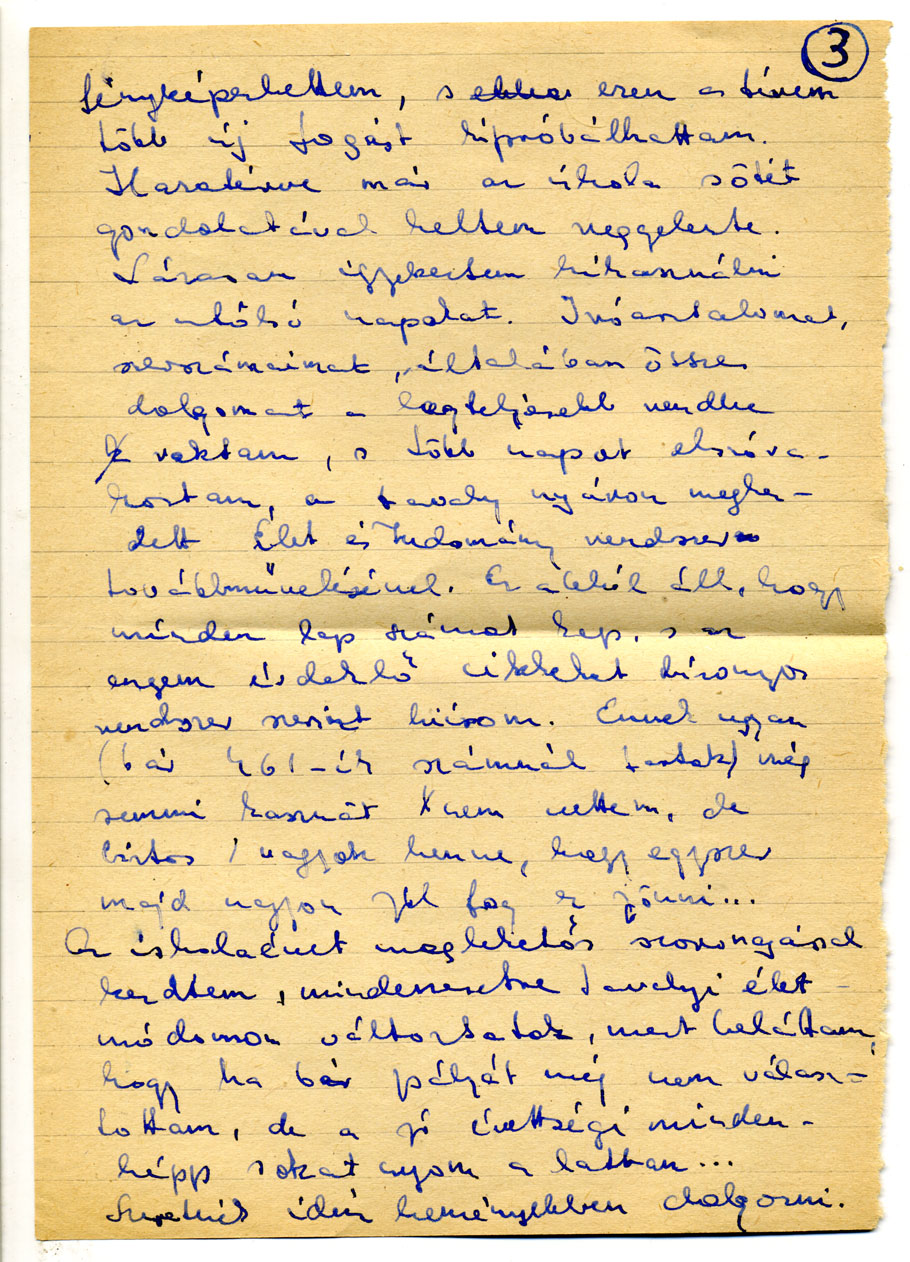 3
fényképezhettem, s ezen a téren
több új fogást kipróbálhattam.
Hazatérve már az iskola sötét
gondolatával keltem reggelente.
Lázasan igyekeztem kihasználni
az utolsó napokat. Íróasztalomat,
szerszámaimat, általában össze
dolgomat a legteljesebb rendbe
raktam, s több napot elszóra-
koztam, a tavaly nyáron megkez-
dett Élet és Tudomány rendszer
továbbművelésével. Ez abból áll, hogy
minden lap számot kap, s az
engem érdeklő cikkeket bizonyos
rendszer szerint kiírom. Ennek ugyan
(bár 461-ik számnál tartok) még
semmi hasznát nem vettem, de
biztos vagyok benne, hogy egyszer
majd nagyon jól fog ez jönni...
Az iskolaévet meglehetős szorongással
kezdtem, mindenesetre tavalyi élet-
módomon változtatok, mert beláttam,
hogy ha bár pályát még nem válasz-
tottam, de a jó érettségi minden-
képp sokat nyom a latban...
Szeretnék idén keményebben dolgozni.